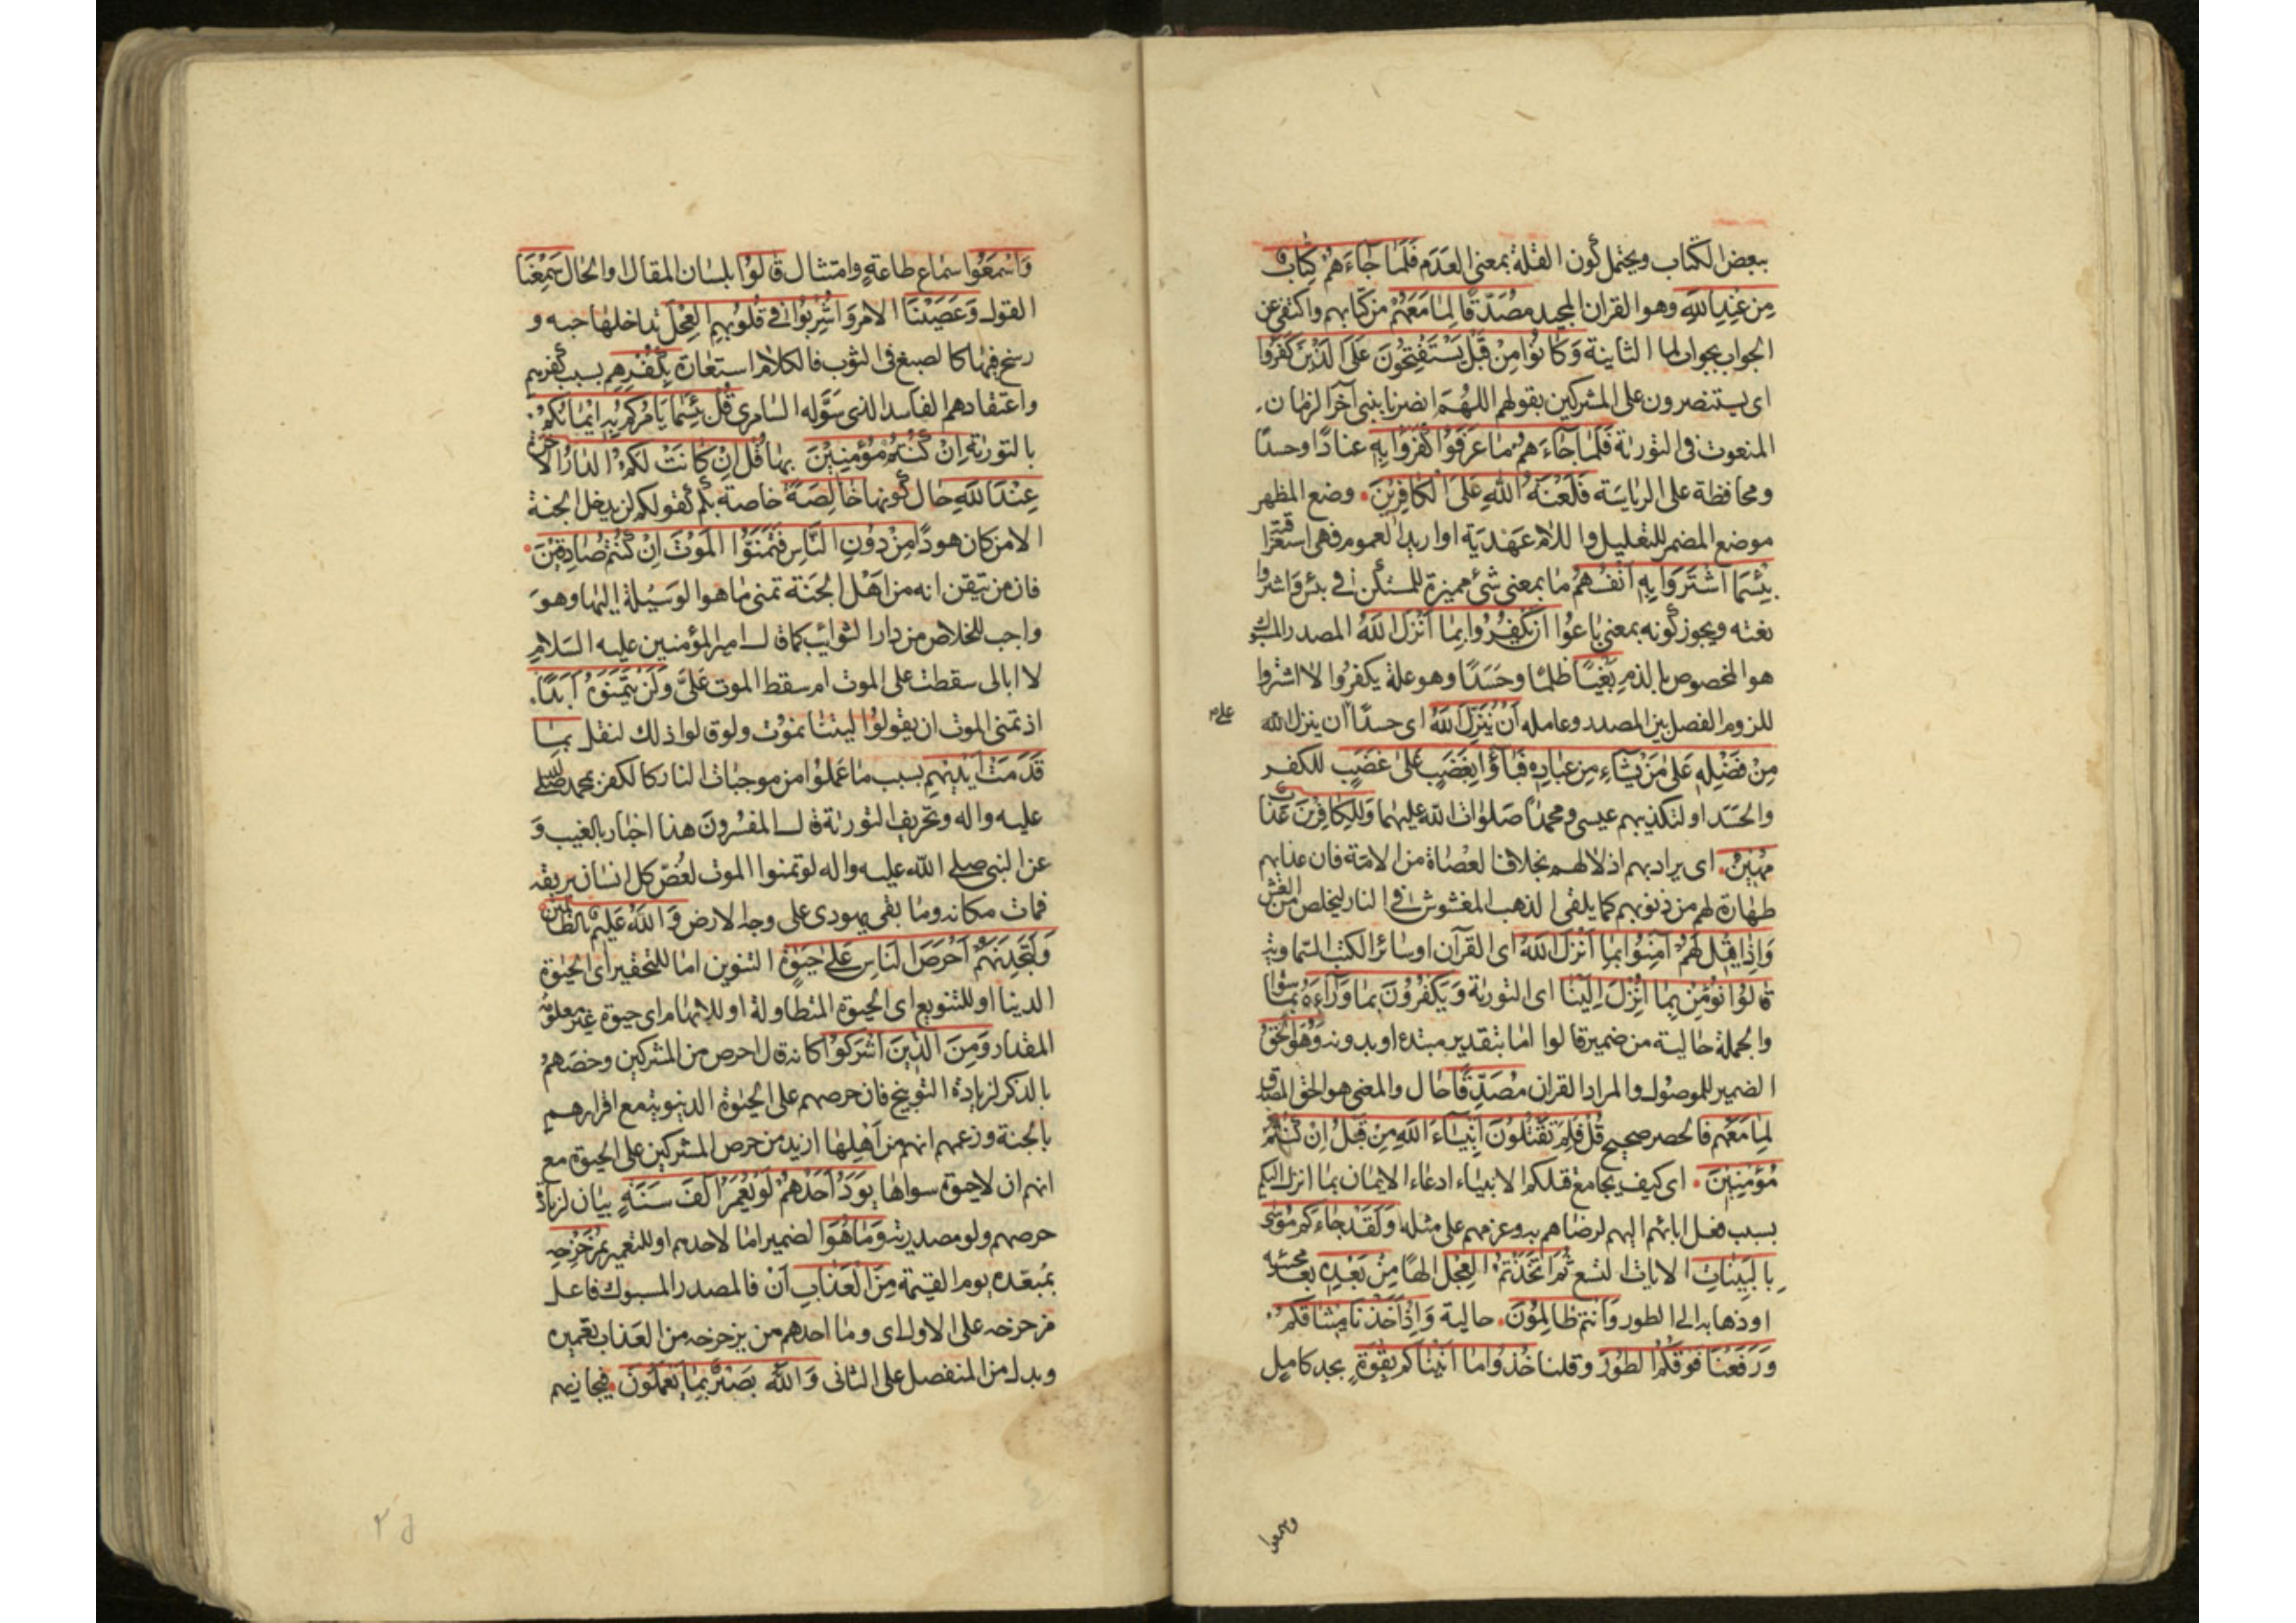 ببعض الكتاب ويحتمل كون القلة بمعنى العدم فَلَمَّا جَاءَهُمْ كِتَابٌ
مِنْ عِنْدِ اللّٰهِ وهو القران المجيد مُصَدِّقًا لِمَا مَعَهُمْ من كتابهم واكتفى عن
الجواب بجواب لما الثانية وَكَانُوا مِنْ قَبْلُ يَسْتَفْتِحُونَ عَلَى الَّذِينَ كَفَرُوا
اى يستنصرون على المشركين بقولهم اللهم انصرنا بنبى آخر الزمان
المنعوت فى التورية فَلَمَّا جَاءَهُمْ مَا عَرَفُوا كَفَرُوا بِهِ عنادًا وحسدًا
ومحافظة على الرياسة فَلَعْنَةُ اللّٰهِ عَلَى الْكَافِرِينَ. وضع المظهر
موضع المضمر للتعليل واللام عهدية او اريد العموم فهى استغراقية
بِئْسَمَا اشْتَرَوْا بِهِ أَنْفُسَهُمْ ما بمعنى شئ مميزة للمستكن في بئس واشتروا
نعته ويجوز كونه بمعنى باعوا أَنْ يَكْفُرُوا بِمَا أَنْزَلَ اللّٰهُ المصدر المسبوك
هو المخصوص بالذم بَغْيًا ظلمًا وحَسَدًا وهو علة يكفروا لا اشتروا
للزوم الفصل بين المصدر وعامله أَنْ يُنَزِّلَ اللّٰهُ اى حسدًا أن ينزل الله
علم
مِنْ فَضْلِهِ عَلَى مَنْ يَشَاءُ مِنْ عِبَادِهِ فَبَاؤُا بِغَضَبٍ عَلَى غَضَبٍ للكفر
والحسد او لتكذيبهم عيسى ومحمدًا صلوات الله عليهما وَلِلْكَافِرِينَ عَذَابٌ
مُهِينٌ. اى يراد بهم اذلالهم بخلاف العصاة من الامة فان عذابهم
طهارة لهم من ذنوبهم كما يلقى الذهب المغشوش في النار ليخلص من الغش
وَإِذَا قِيلَ لَهُمْ آمِنُوا بِمَا أَنْزَلَ اللّٰهُ اى القرآن او سائر الكتب السماوية
قَالُوا نُؤْمِنُ بِمَا أُنْزِلَ إِلَيْنَا اى التورية وَيَكْفُرُونَ بِمَا وَرَاءَهُ بما سواه
والجملة حالية من ضمير قالوا اما بتقدير مبتدء او بدونه وَهُوَ الْحَقُّ
الضمير للموصول والمراد القران مُصَدِّقًا حال والمعنى هو الحق المصدق
لِمَا مَعَهُمْ فالحصر صحيح قُلْ فَلِمَ تَقْتُلُونَ أَنْبِيَاءَ اللّٰهِ مِنْ قَبْلُ إِنْ كُنْتُمْ
مُؤْمِنِينَ. اى كيف يجامع قتلكم الانبياء ادعاء الايمان بما انزل اليكم
بسبب فعل ابائهم اليهم لرضاهم به وعزمهم على مثله وَلَقَدْ جَاءَكُمْ مُوسَى
بِالْبَيِّنَاتِ الايات التسع ثُمَّ اتَّخَذْتُمُ الْعِجْلَ الهًا مِنْ بَعْدِهِ بعد مجيئه
او ذهابه الى الطور وَأَنْتُمْ ظَالِمُونَ. حالية وَإِذْ أَخَذْنَا مِيثَاقَكُمْ
وَرَفَعْنَا فَوْقَكُمُ الطُّورَ وقلنا خُذُوا مَا آتَيْنَاكُمْ بِقُوَّةٍ بجد كامل
واسمعوا
وَاسْمَعُوا سماع طاعةٍ وامتثال قَالُوا بلسان المقال والحال سَمِعْنَا
القول وَعَصَيْنَا الامر وَأُشْرِبُوا فِي قُلُوبِهِمُ الْعِجْلَ تداخلها حبه و
رسخ فيها كالصبغ فى الثوب فالكلام استعارة بِكُفْرِهِمْ بسبب كفرهم
واعتقادهم الفاسد الذى سَوَّله السامرى قُلْ بِئْسَمَا يَأْمُرُكُمْ بِهِ إِيمَانُكُمْ
بالتورية إِنْ كُنْتُمْ مُؤْمِنِينَ بها قُلْ إِنْ كَانَتْ لَكُمُ الدَّارُ الْآخِرَةُ
عِنْدَ اللّٰهِ حال كونها خَالِصَةً خاصة بكم كقولكم لن يدخل الجنة
الا من كان هودًا مِنْ دُونِ النَّاسِ فَتَمَنَّوُا الْمَوْتَ إِنْ كُنْتُمْ صَادِقِينَ.
فان من تيقن انه من اهل الجنة تمنى ما هو الوسيلة اليها وهو
واجب للخلاص من دار الشوائب كما قال امير المؤمنين عليه السلام
لا ابالى سقطت على الموت ام سقط الموت عَلَىَّ وَلَنْ يَتَمَنَّوْهُ أَبَدًا.
اذ تمنى الموت ان يقولوا ليتنا نموت ولو قالوا ذلك لنقل بِمَا
قَدَّمَتْ أَيْدِيهِمْ بسبب ما عملوا من موجبات النار كالكفر بمحمد صلى الله
عليه واله وتحريف التورية قال المفسرون هذا اخبار بالغيب و
عن النبى صلى الله عليه واله لو تمنوا الموت لغُصّ كل انسان بريقه
فمات مكانه وما بقى يهودى على وجه الارض وَاللّٰهُ عَلِيمٌ بِالظَّالِمِينَ
وَلَتَجِدَنَّهُمْ أَحْرَصَ النَّاسِ عَلَى حَيٰوةٍ التنوين اما للتحقير اى الحيوة
الدنيا او للتنويع اى الحيوة المتطاولة او للابهام اى حيوة غير معلومة
المقدار وَمِنَ الَّذِينَ أَشْرَكُوا كانه قال احرص من المشركين وخصهم
بالذكر لزيادة التوبيخ فان حرصهم على الحيوة الدنيوية مع اقرارهم
بالجنة وزعمهم انهم من أهلها ازيد من حرص المشركين على الحيوة مع
انهم ان لا حيوة سواها يَوَدُّ أَحَدُهُمْ لَوْ يُعَمَّرُ أَلْفَ سَنَةٍ بيان لزيادة
حرصهم ولو مصدرية وَمَا هُوَ الضمير اما لاحدهم او للتعمير بِمُزَحْزِحِهِ
بمُبَعّده يوم القيمة مِنَ الْعَذَابِ أَنْ فالمصدر المسبوك فاعل
مزحزحه على الاول اى وما احدهم من يزحزحه من العذاب تعميره
وبدل من المنفصل على الثانى وَاللّٰهُ بَصِيرٌ بِمَا يَعْمَلُونَ. فيجازيهم